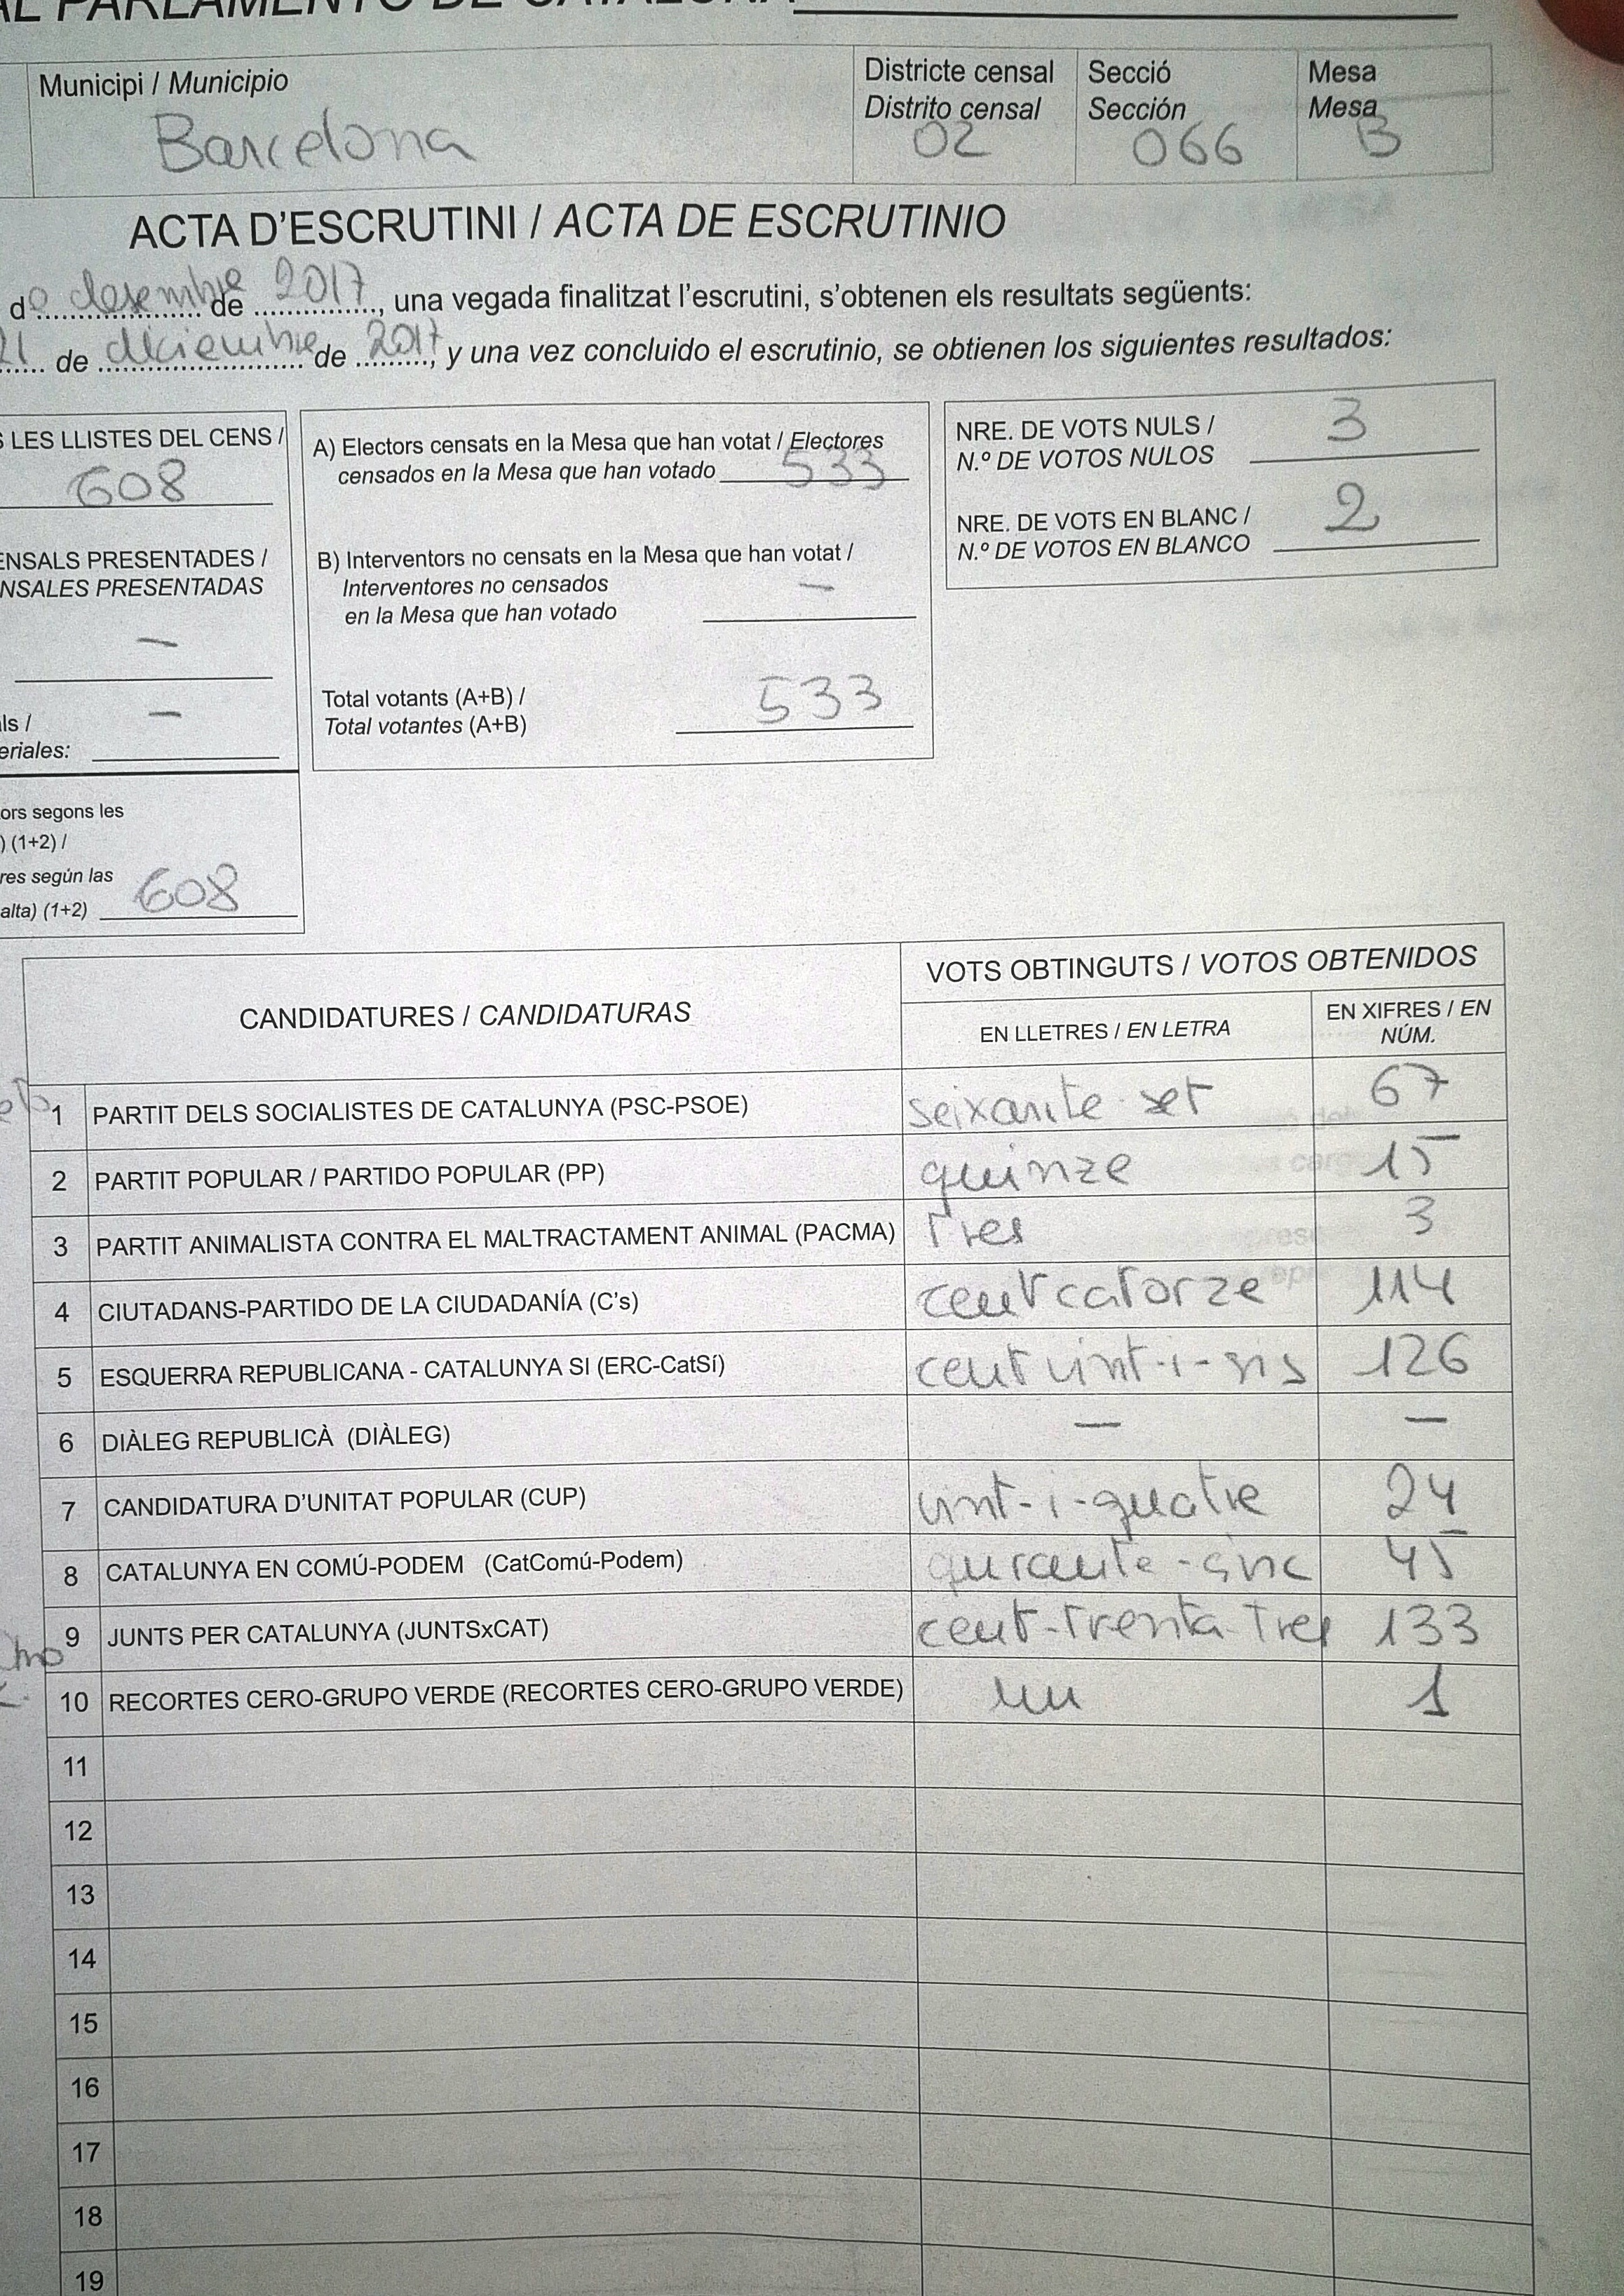 AL PARLAMENTO DE CATALUÑA
Municipi / Municipio
Barcelona
Districte censal
Distrito censal
02
Secció
Sección
066
Mesa
Mesa
B
ACTA D'ESCRUTINI / ACTA DE ESCRUTINIO
de desembre de 2017, una vegada finalitzat l'escrutini, s'obtenen els resultats següents:
21 de diciembre de 2017, y una vez concluido el escrutinio, se obtienen los siguientes resultados:
LES LLISTES DEL CENS /
608
ENSALS PRESENTADES /
NSALES PRESENTADAS
—
ls /
eriales: —
ors segons les
) (1+2) /
res según las
alta) (1+2) 608
A) Electors censats en la Mesa que han votat / Electores
censados en la Mesa que han votado 533
B) Interventors no censats en la Mesa que han votat /
Interventores no censados
en la Mesa que han votado —
Total votants (A+B) /
Total votantes (A+B) 533
NRE. DE VOTS NULS /
N.º DE VOTOS NULOS 3
NRE. DE VOTS EN BLANC /
N.º DE VOTOS EN BLANCO 2
CANDIDATURES / CANDIDATURAS
VOTS OBTINGUTS / VOTOS OBTENIDOS
EN LLETRES / EN LETRA
EN XIFRES / EN
NÚM.
1 PARTIT DELS SOCIALISTES DE CATALUNYA (PSC-PSOE) seixante-set 67
2 PARTIT POPULAR / PARTIDO POPULAR (PP) quinze 15
3 PARTIT ANIMALISTA CONTRA EL MALTRACTAMENT ANIMAL (PACMA) Tres 3
4 CIUTADANS-PARTIDO DE LA CIUDADANÍA (C's) cent catorze 114
5 ESQUERRA REPUBLICANA - CATALUNYA SI (ERC-CatSí) cent vint-i-sis 126
6 DIÀLEG REPUBLICÀ (DIÀLEG) — —
7 CANDIDATURA D'UNITAT POPULAR (CUP) vint-i-quatre 24
8 CATALUNYA EN COMÚ-PODEM (CatComú-Podem) quirante-sinc 45
9 JUNTS PER CATALUNYA (JUNTSxCAT) cent-Trenta-Tres 133
10 RECORTES CERO-GRUPO VERDE (RECORTES CERO-GRUPO VERDE) un 1
11
12
13
14
15
16
17
18
19